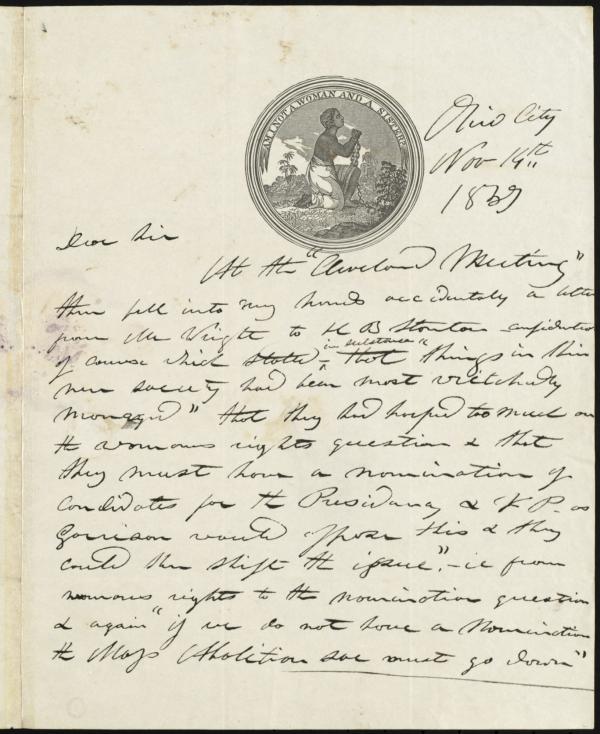 AM I NOT A WOMAN AND A SISTER?
Ohio City
Nov 19th
1839
Dear Sir
At the "Cleveland Meeting"
there fell into my hands accidentaly a letter
from Mr Wright to H B Stanton confidential
of course which stated - in substance "that things in their
new society had been most wretchedly
managed" that they had harped too much on
the womans rights question & that
they must have a nomination of
Candidates for the Presidency & V. P. as
Garrison would oppose this & they
could then shift the issue". - ie from
womans rights to the nomination question
& again "if we do not have a Nomination
the Mass Abolition soc must go down"